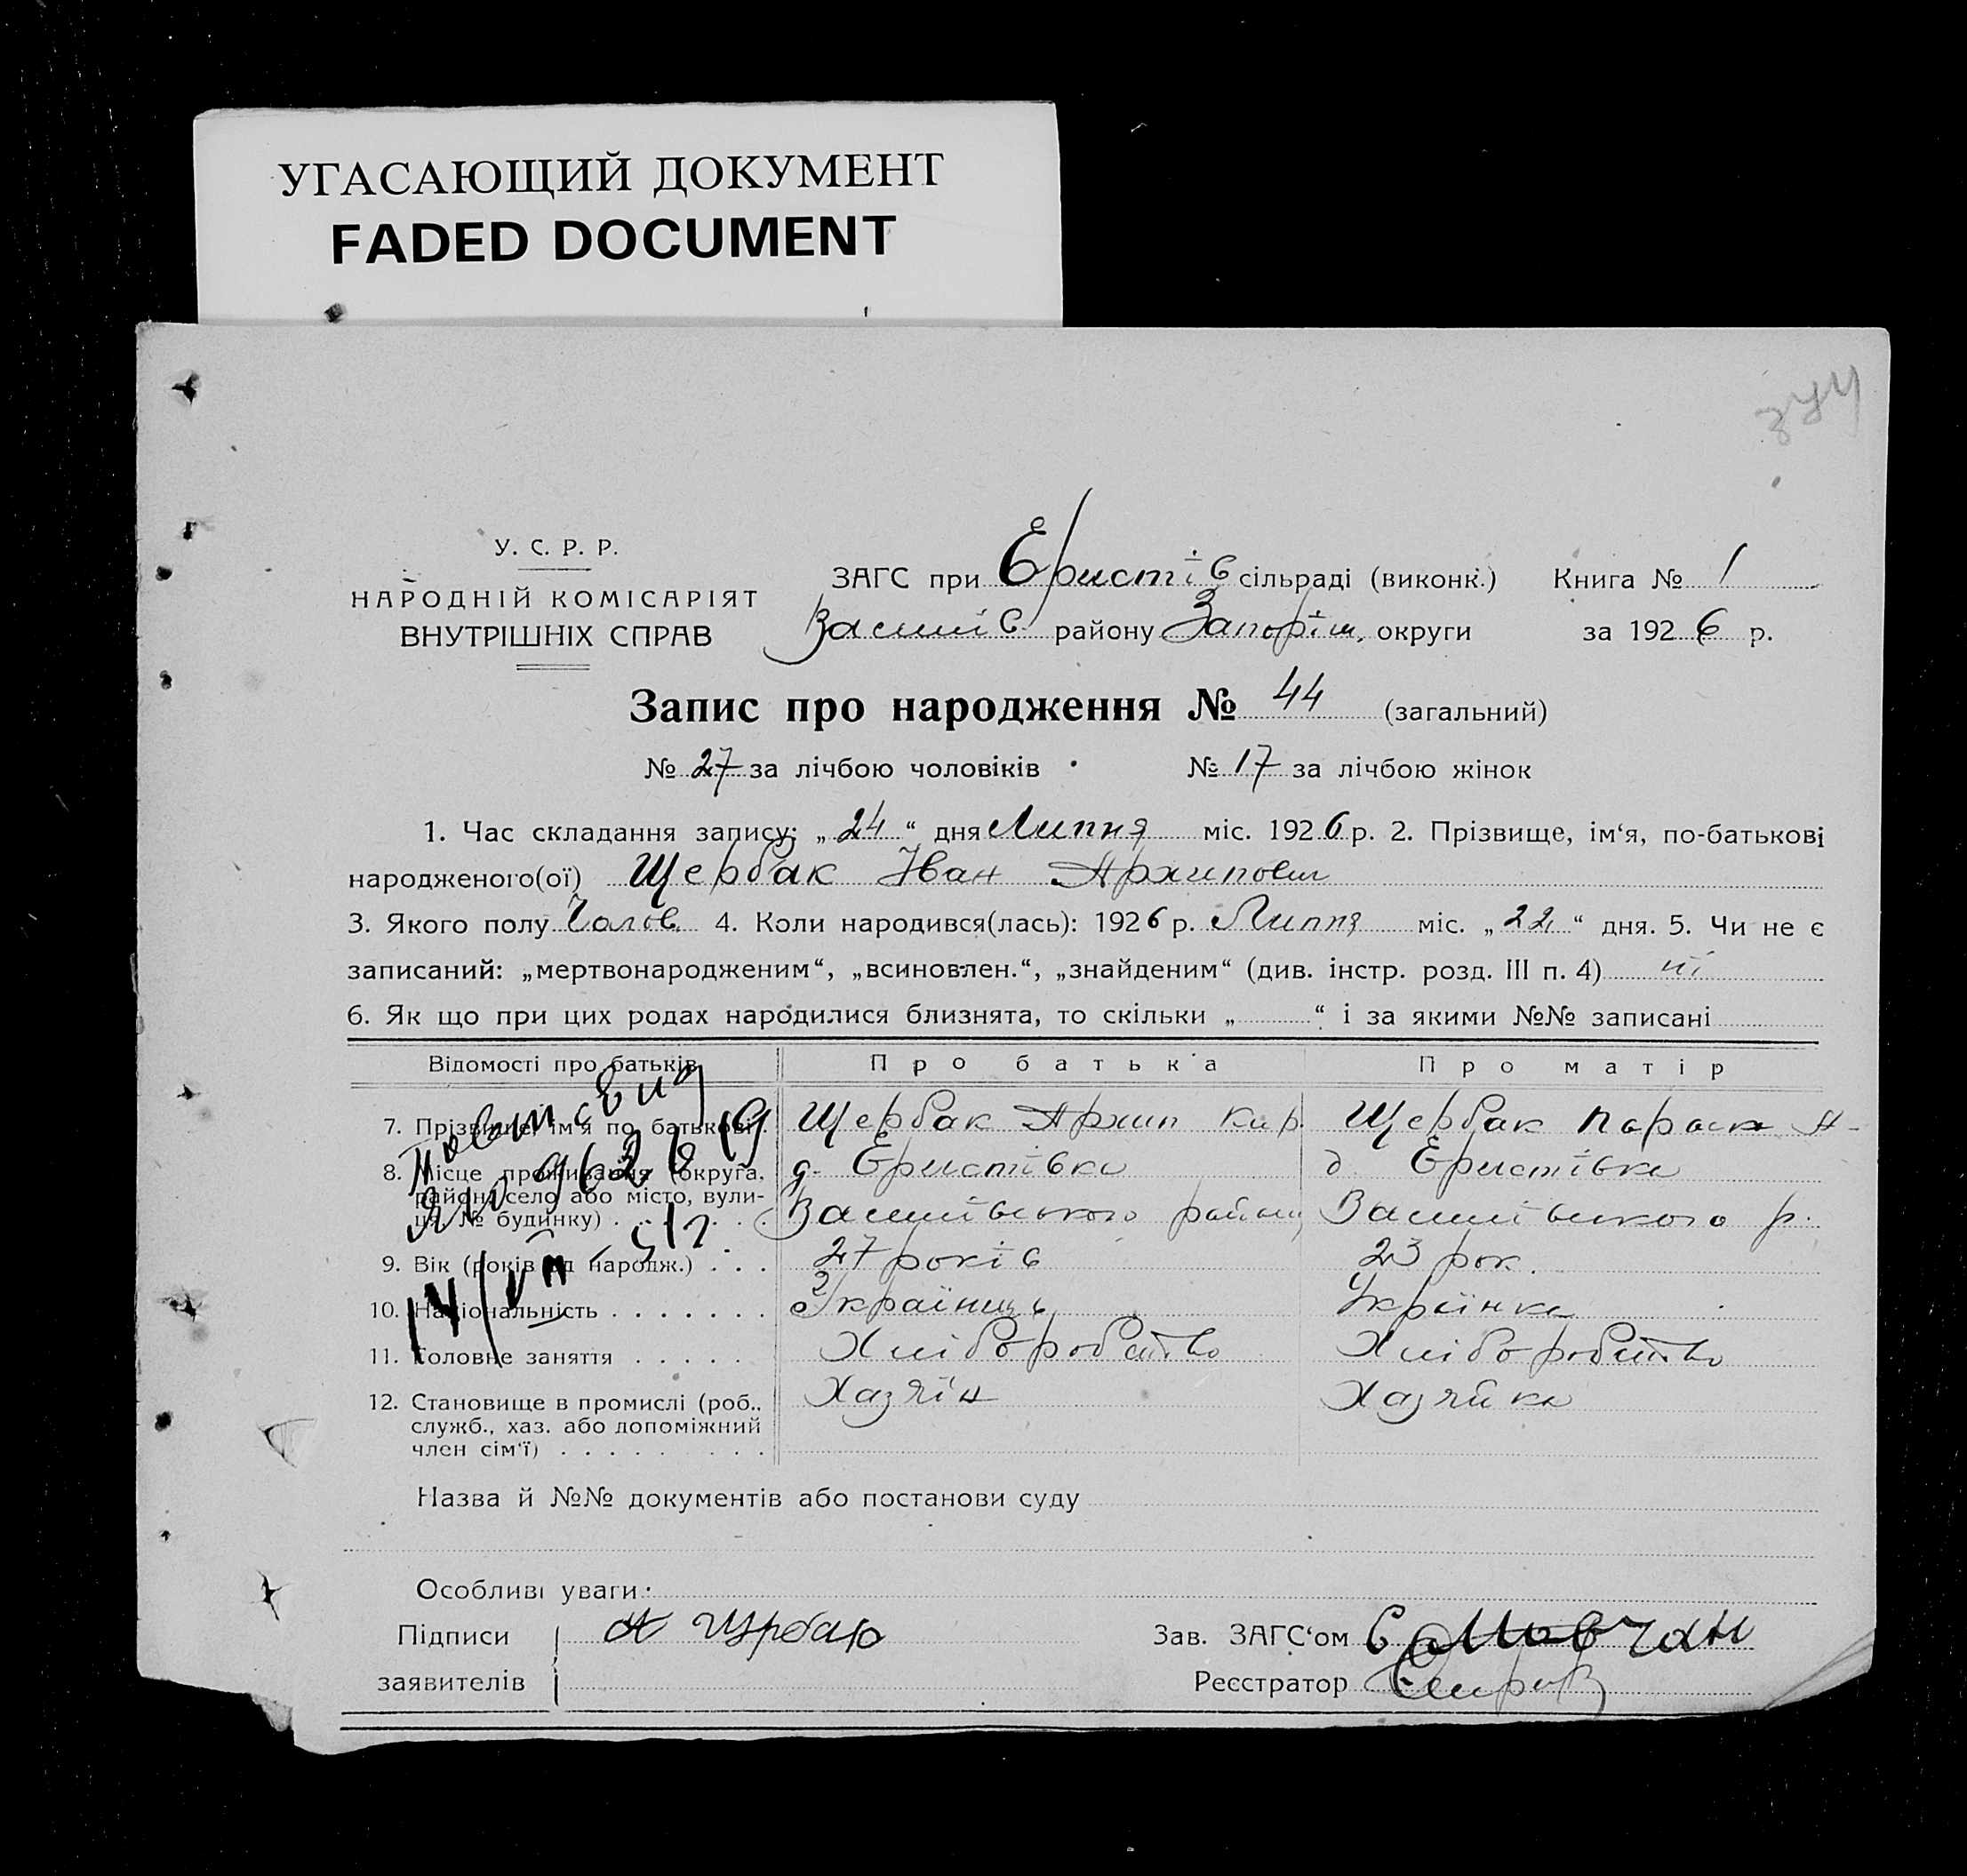 УГАСАЮЩИЙ ДОКУМЕНТ
FADED DOCUMENT
У. С. Р. Р.
НАРОДНІЙ КОМІСАРІЯТ
ВНУТРІШНІХ СПРАВ
ЗАГС при Еристів сільраді (виконк.) Книга № 1
району Запоріж. округи за 1926 р.
Запис про народження № 44 (загальний)
№ 27 за лічбою чоловіків № 17 за лічбою жінок
1. Час складання запису: „24“ дня Липня міс. 1926 р. 2. Прізвище, ім‘я, по-батькові
народженого(ої) Щербак Іван Архипович
3. Якого полу Чолов. 4. Коли народився(лась): 1926 р. Липня міс. „22“ дня. 5. Чи не є
записаний: „мертвонародженим“, „всиновлен.“, „знайденим“ (див. інстр. розд. III п. 4) ні
6. Як що при цих родах народилися близнята, то скільки „ “ і за якими №№ записані
Відомості про батьків Про батька Про матір
7. Прізвище, ім‘я по батькові Щербак Архип Кир Щербак Параск А-
8. Місце проживання (округа, д. Еристівка д Еристівка
район, село або місто, вули-
ця, № будинку) . . . . . району р.
9. Вік (років від народж.) . . . 27 років 23 рок.
10. Національність . . . . . . . Українець Українка
11. Головне заняття . . . . . Хліборобство Хліборобство
12. Становище в промислі (роб., Хазяїн Хазяйка
служб., хаз. або допоміжний
член сім‘ї) . . . . . . . . .
Повт свид
14/VII-51г
Назва й №№ документів або постанови суду
Особливі уваги:
Підписи Зав. ЗАГС‘ом Мовчан
заявителів Реєстратор